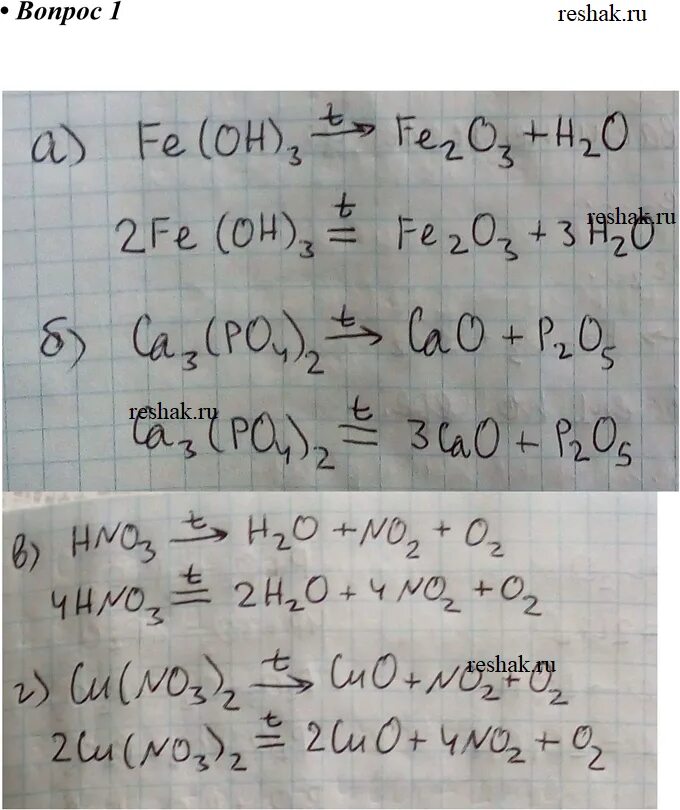 • Вопрос 1
reshak.ru
а) Fe(OH)₃ —t→ Fe₂O₃ + H₂O
reshak.ru
2Fe(OH)₃ =t= Fe₂O₃ + 3H₂O
б) Ca₃(PO₄)₂ —t→ CaO + P₂O₅
reshak.ru
Ca₃(PO₄)₂ =t= 3CaO + P₂O₅
в) HNO₃ —t→ H₂O + NO₂ + O₂
4HNO₃ =t= 2H₂O + 4NO₂ + O₂
reshak.ru
г) Cu(NO₃)₂ —t→ CuO + NO₂ + O₂
2Cu(NO₃)₂ =t= 2CuO + 4NO₂ + O₂